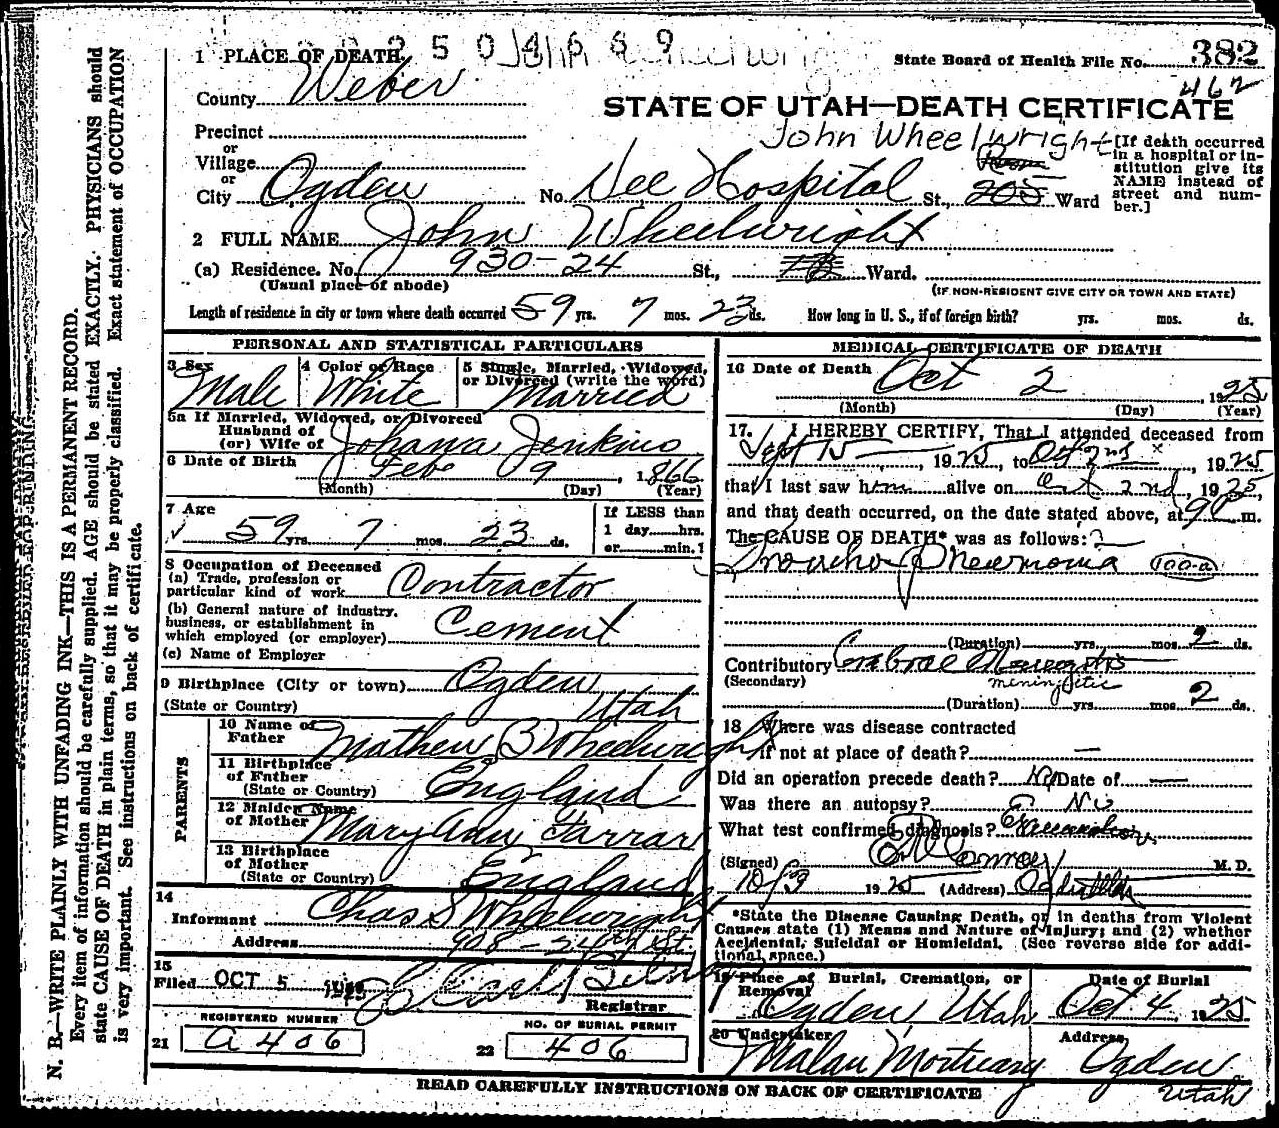 2 5 0 4 6 6 9
State Board of Health File No. 382
462
1 PLACE OF DEATH
County Weber
STATE OF UTAH—DEATH CERTIFICATE
John Wheelwright
Precinct
or
Village
or
City Ogden No. Dee Hospital St., Room 205 Ward
[If death occurred in a hospital or institution give its NAME instead of street and number.]
2 FULL NAME John Wheelwright
(a) Residence. No. 930-24 St., Ward.
(Usual place of abode)
(IF NON-RESIDENT GIVE CITY OR TOWN AND STATE)
Length of residence in city or town where death occurred 59 yrs. 7 mos. 23 ds. How long in U. S., if of foreign birth? yrs. mos. ds.
PERSONAL AND STATISTICAL PARTICULARS
3 Sex Male
4 Color or Race White
5 Single, Married, Widowed, or Divorced (write the word) Married
5a If Married, Widowed, or Divorced
Husband of
(or) Wife of Johana Jenkins
6 Date of Birth Feb 9, 1866
(Month) (Day) (Year)
7 Age
59 yrs. 7 mos. 23 ds.
If LESS than
1 day hrs.
or min.
8 Occupation of Deceased
(a) Trade, profession or
particular kind of work Contractor
(b) General nature of industry,
business, or establishment in
which employed (or employer) Cement
(c) Name of Employer
9 Birthplace (City or town) Ogden
(State or Country) Utah
PARENTS
10 Name of
Father Mathew B Wheelwright
11 Birthplace
of Father
(State or Country) England
12 Maiden Name
of Mother Mary Ann Farrar
13 Birthplace
of Mother
(State or Country) England
14
Informant Chas S Wheelwright
Address 908-24th St.
15
Filed OCT 5
Registrar
REGISTERED NUMBER
21 A 406
NO. OF BURIAL PERMIT
22 406
MEDICAL CERTIFICATE OF DEATH
16 Date of Death Oct 2, 1925
(Month) (Day) (Year)
17. I HEREBY CERTIFY, That I attended deceased from
Sept 15, 1925, to Oct 2nd, 1925
that I last saw him alive on Oct 2nd, 1925,
and that death occurred, on the date stated above, at 9 m.
The CAUSE OF DEATH* was as follows:
Broncho Pneumonia 100-a
(Duration) yrs. mos. 2 ds.
Contributory
(Secondary) meningitis
(Duration) yrs. mos. 2 ds.
18 Where was disease contracted
if not at place of death? —
Did an operation precede death? No Date of —
Was there an autopsy? No
What test confirmed diagnosis?
(Signed) Conroy M. D.
10/3 1925 (Address) Ogden Utah
*State the Disease Causing Death, or in deaths from Violent
Causes state (1) Means and Nature of Injury; and (2) whether
Accidental, Suicidal or Homicidal. (See reverse side for addi-
tional space.)
19 Place of Burial, Cremation, or
Removal Ogden, Utah
Date of Burial
Oct 4 1925
20 Undertaker
Malan Mortuary
Address
Ogden
Utah
READ CAREFULLY INSTRUCTIONS ON BACK OF CERTIFICATE
N. B.—WRITE PLAINLY WITH UNFADING INK—THIS IS A PERMANENT RECORD.
Every item of information should be carefully supplied. AGE should be stated EXACTLY. PHYSICIANS should
state CAUSE OF DEATH in plain terms, so that it may be properly classified. Exact statement of OCCUPATION
is very important. See instructions on back of certificate.